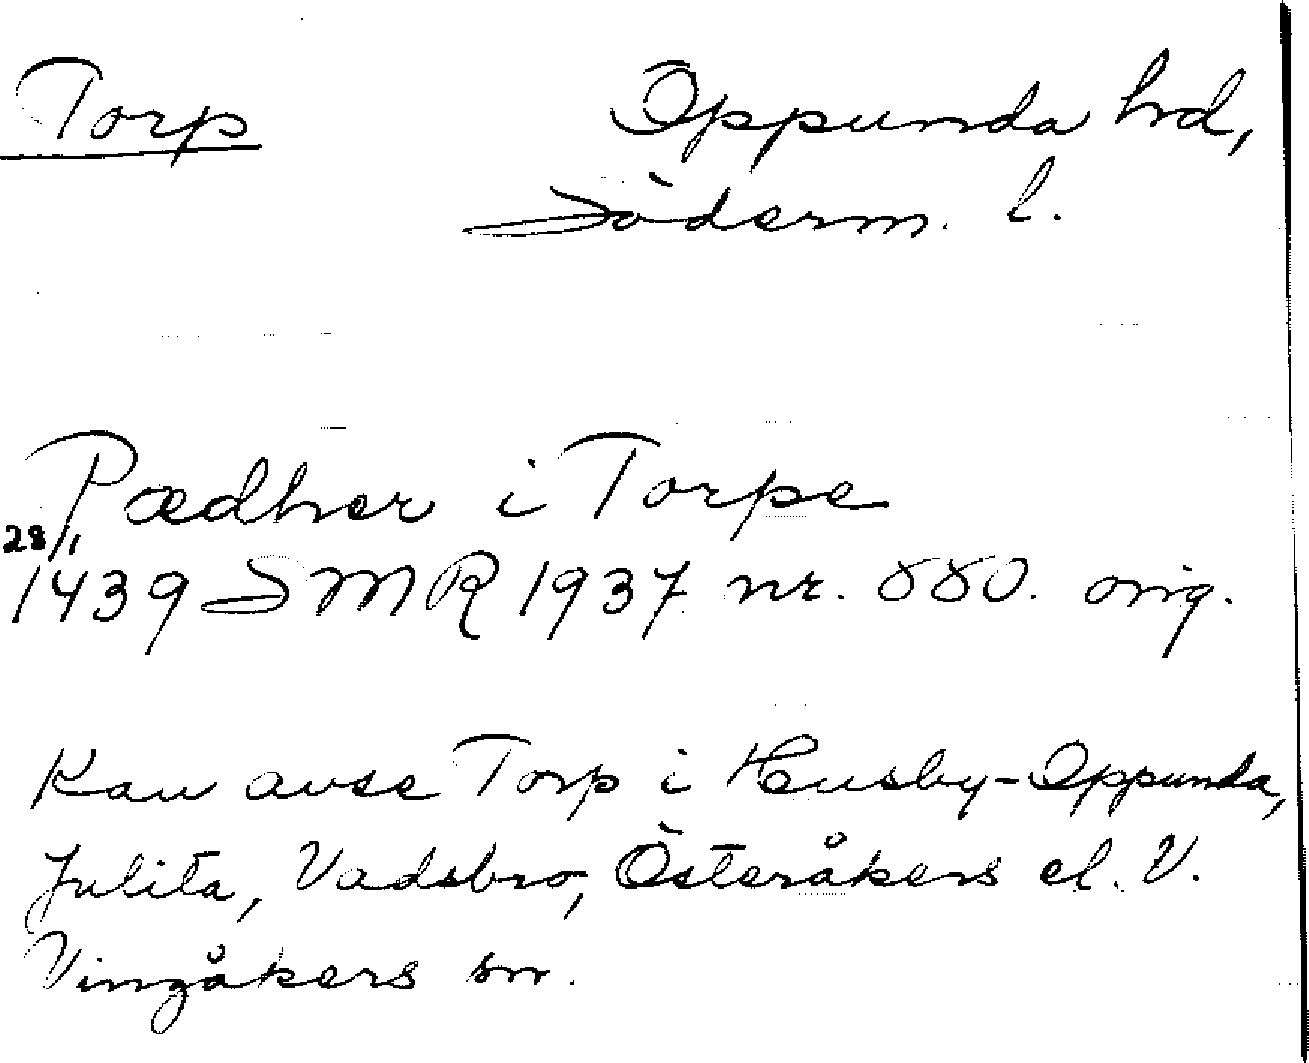 Torp Oppunda hrd,
Söderm. l.
Pædher i Torpe
28/1
1439 SMR 1937 nr. 880. orig.
Kan avse Torp i Husby-Oppunda,
Julita, Vadsbro, Österåkers el. V.
Vingåkers snr.